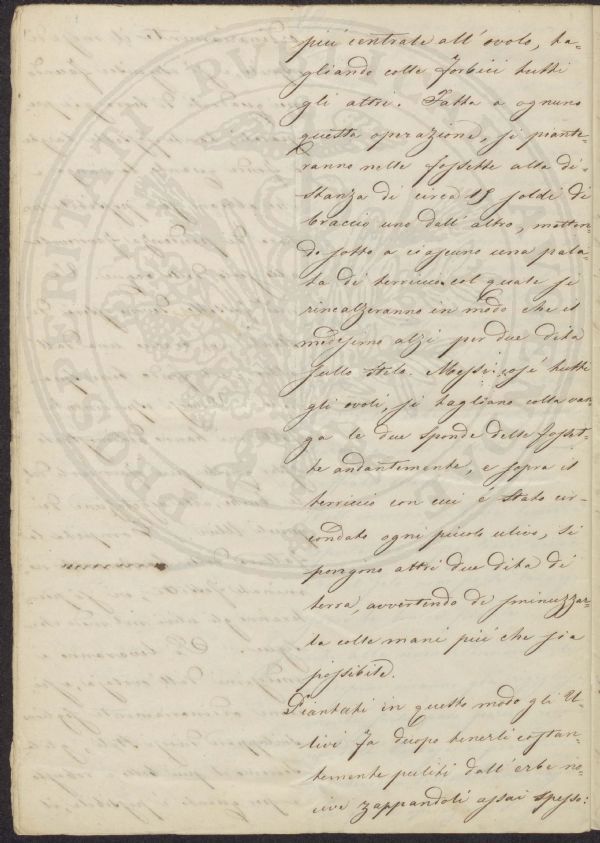 più centrale all'ovolo, ta-
gliando colle forbici tutti
gli altri. Fatta a ognuno
questa operazione, si piante-
ranno nelle fossette alla di-
stanza di circa 15 soldi di
braccio uno dall'altro, metten-
do sotto a ciascuno una pala-
ta di terriccio col quale si
rincalzeranno in modo che il
medesimo alzi per due dita
sullo stelo. Messi così tutti
gli ovoli, si tagliano colla van-
ga le due sponde delle fosset-
te andantemente, e sopra il
terriccio con cui è stato cir-
condato ogni piccolo ulivo, si
pongono altri due dita di
terra, avvertendo di sminuzzar-
la colle mani più che sia
possibile.
Piantati in questo modo gli U-
livi fa duopo tenerli costan-
temente puliti dall'erbe no-
cive zappandoli assai spesso:
PROSPERITATI PUBLICAE